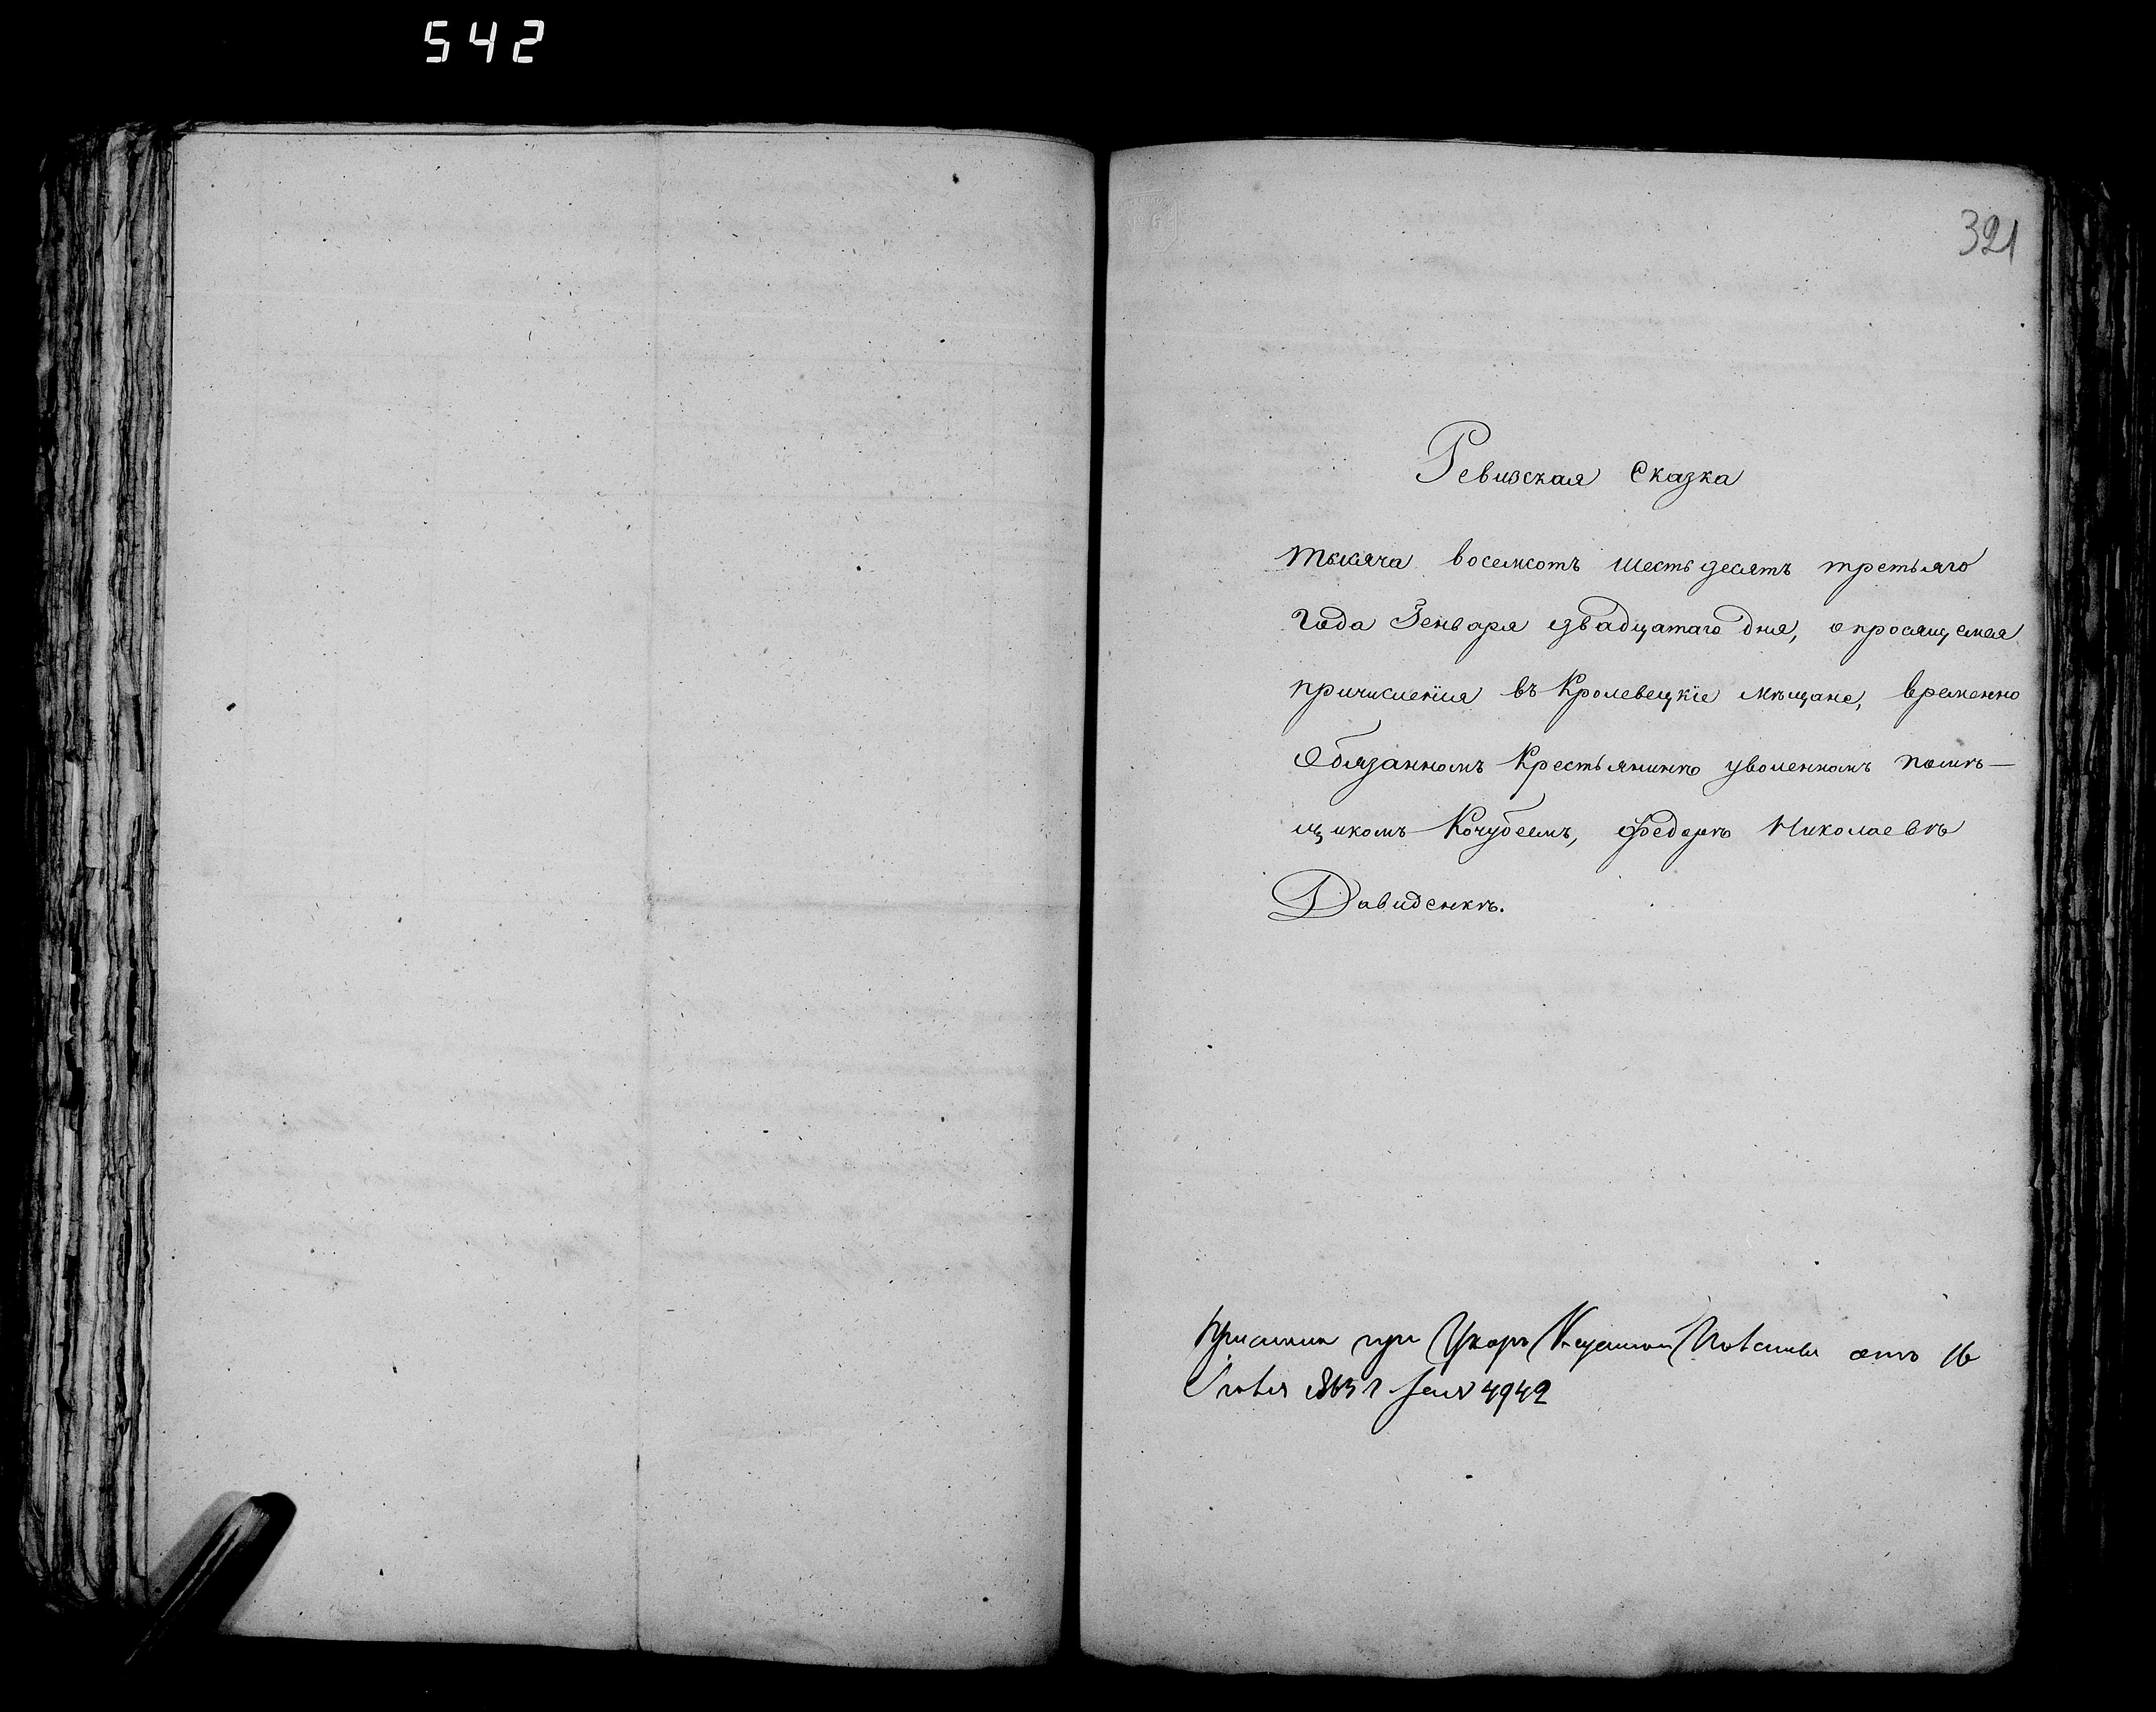 542
321
Ревизская Сказка
тысяча восемсотъ шестьдесятъ третьяго
года Генваря двадцатаго дня, опросящемся
причисленія въ Кролевецкіе мѣщане, временно
Обязанномъ Крестьянинѣ уволенномъ помѣ-
щикомъ Кочубеемъ, Федорѣ Николаевѣ
Давиденкѣ.
при Указѣ Казенной Палаты отъ 16
1863 г 4942